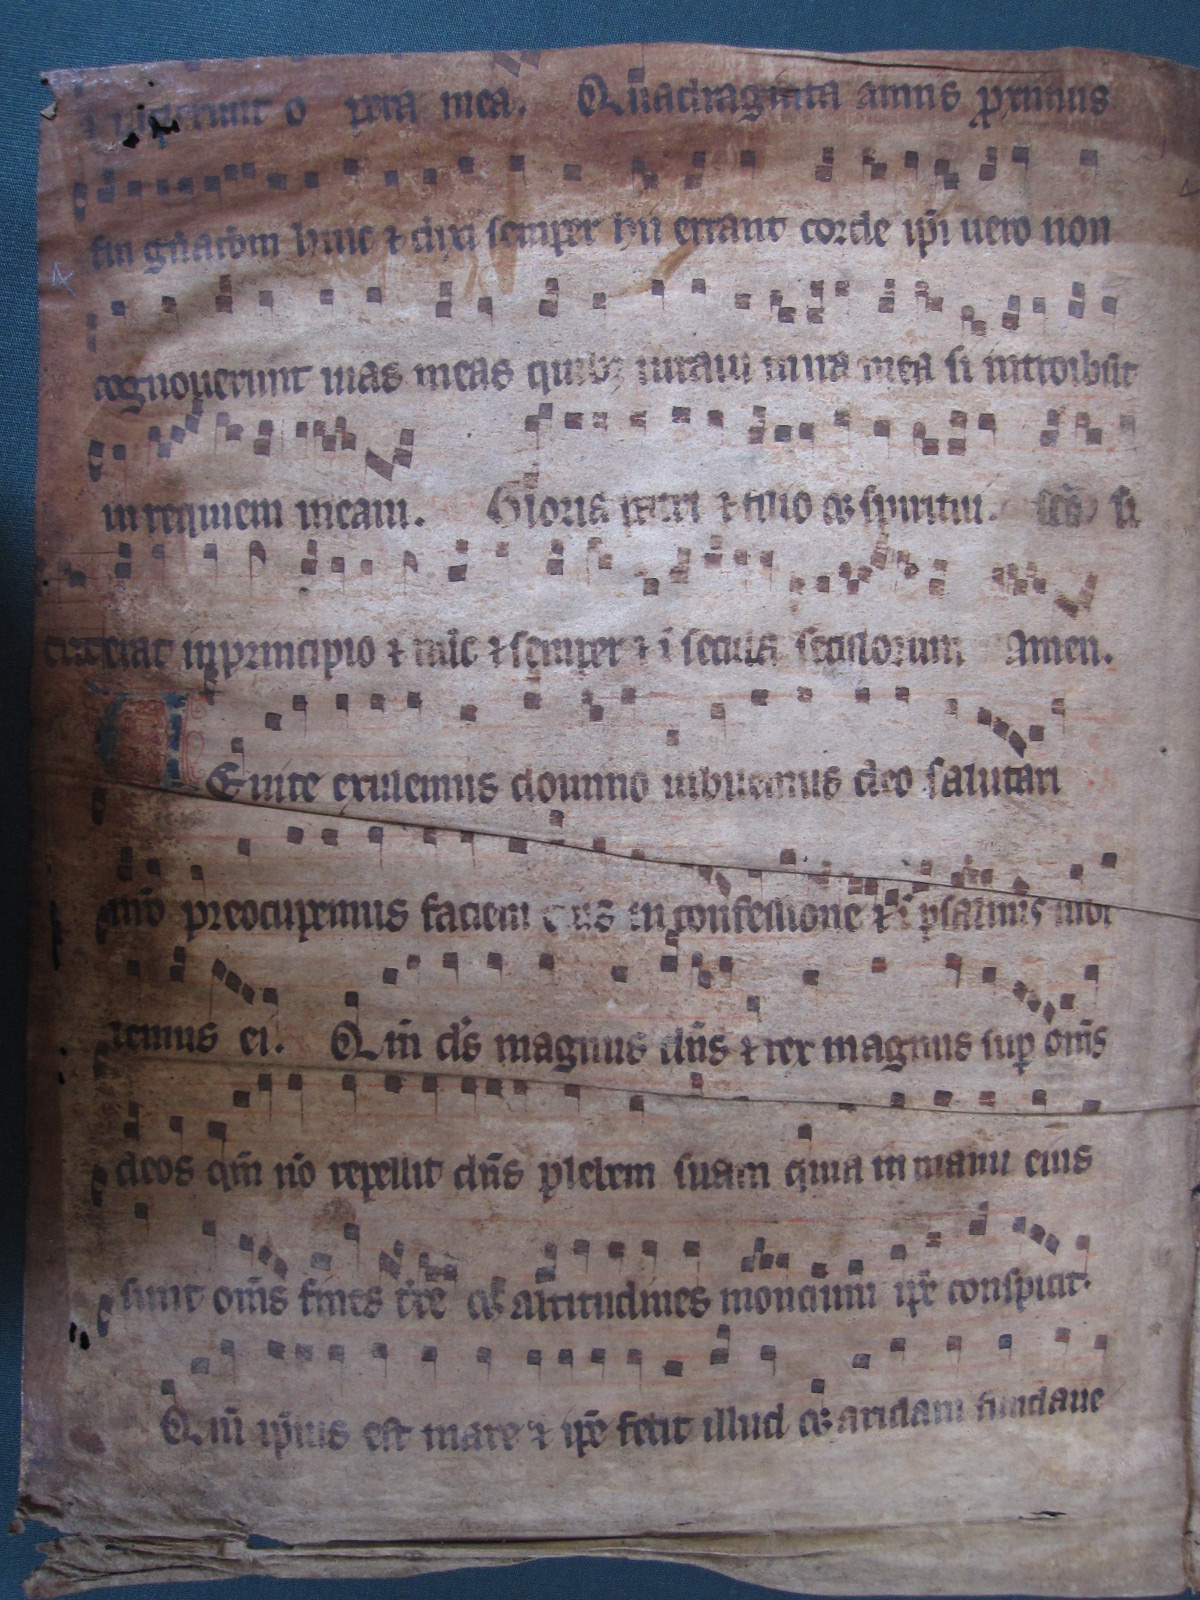 uiderunt o pera mea. Quadraginta annis proximus
fui gnãtiõni huic ⁊ dixi semper hii errant corde ip̃i uero non
cognouerunt uias meas quibꝫ iuraui in ira mea si introibũt
in requiem meam. Gloria patri ⁊ filio qꝫ spiritui. sc̃o si
cut erat in principio ⁊ nũc ⁊ semper ⁊ ĩ secula seculorum Amen.
Uenite exultemus domino iubilemus deo salutari
nr̃o preocupemus faciem eius in confessione ⁊ ĩ psalmis iubi
lemus ei. Qm̃ ds̃ magnus dñs ⁊ rex magnus suꝑ om̃s
deos qm̃ nõ repellit dñs plebem suam quia in manu eius
sunt om̃s fines t̃re qꝫ altitudines moncium ip̃e conspicit.
Qm̃ ip̃ius est mare ⁊ ip̃e fecit illud qꝫ aridam fundaue